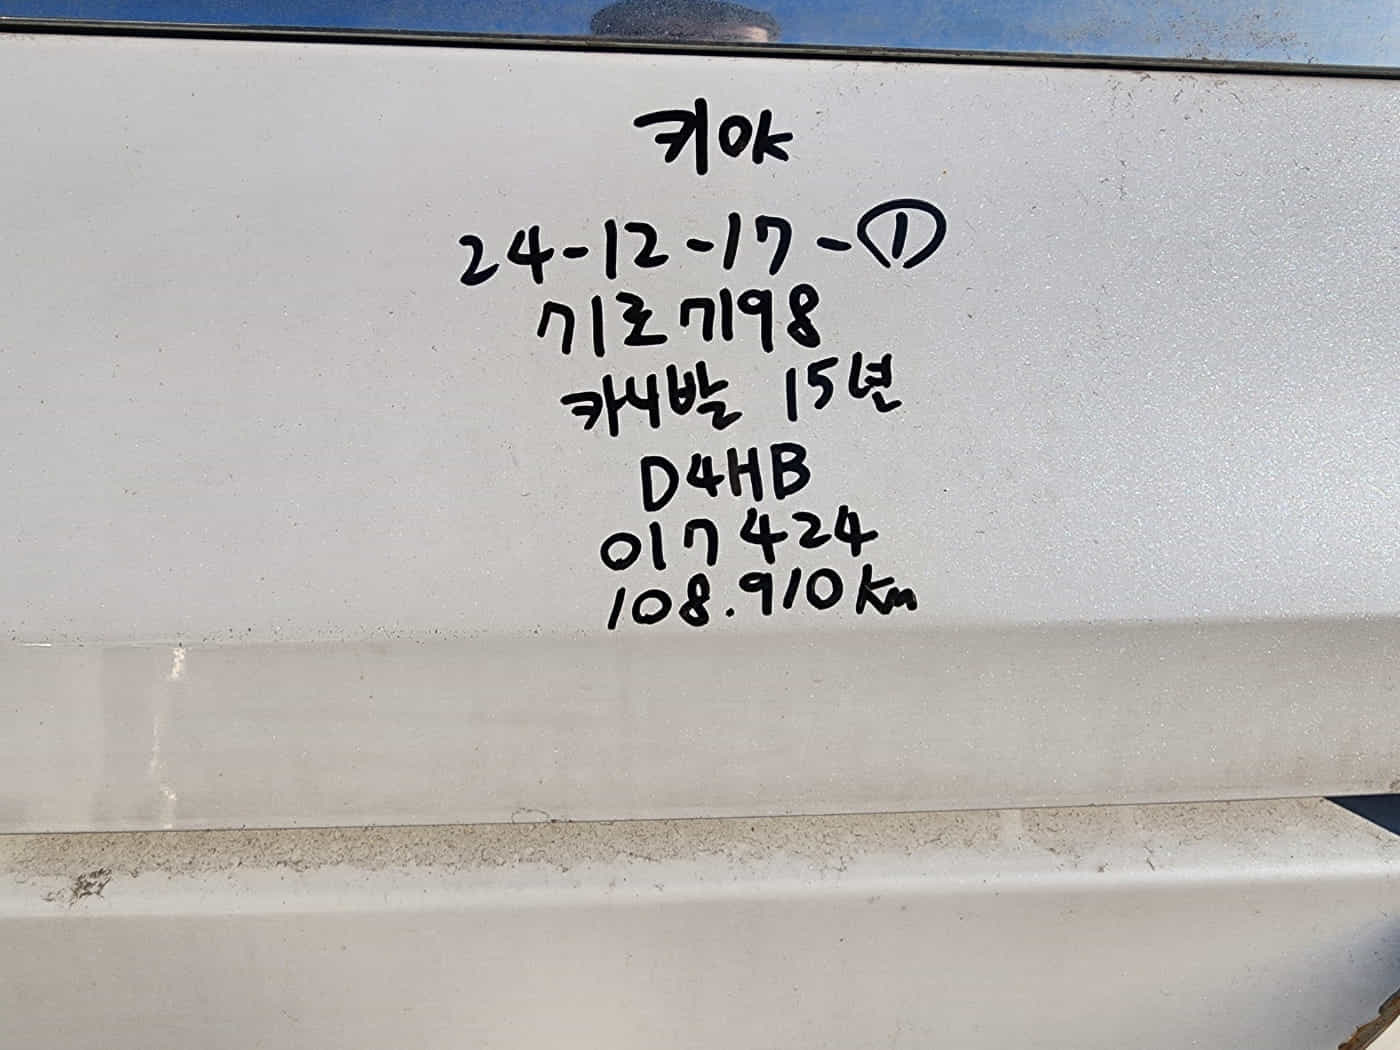 키OK
24-12-17-①
71로7198
카니발 15년
D4HB
017424
108.910km